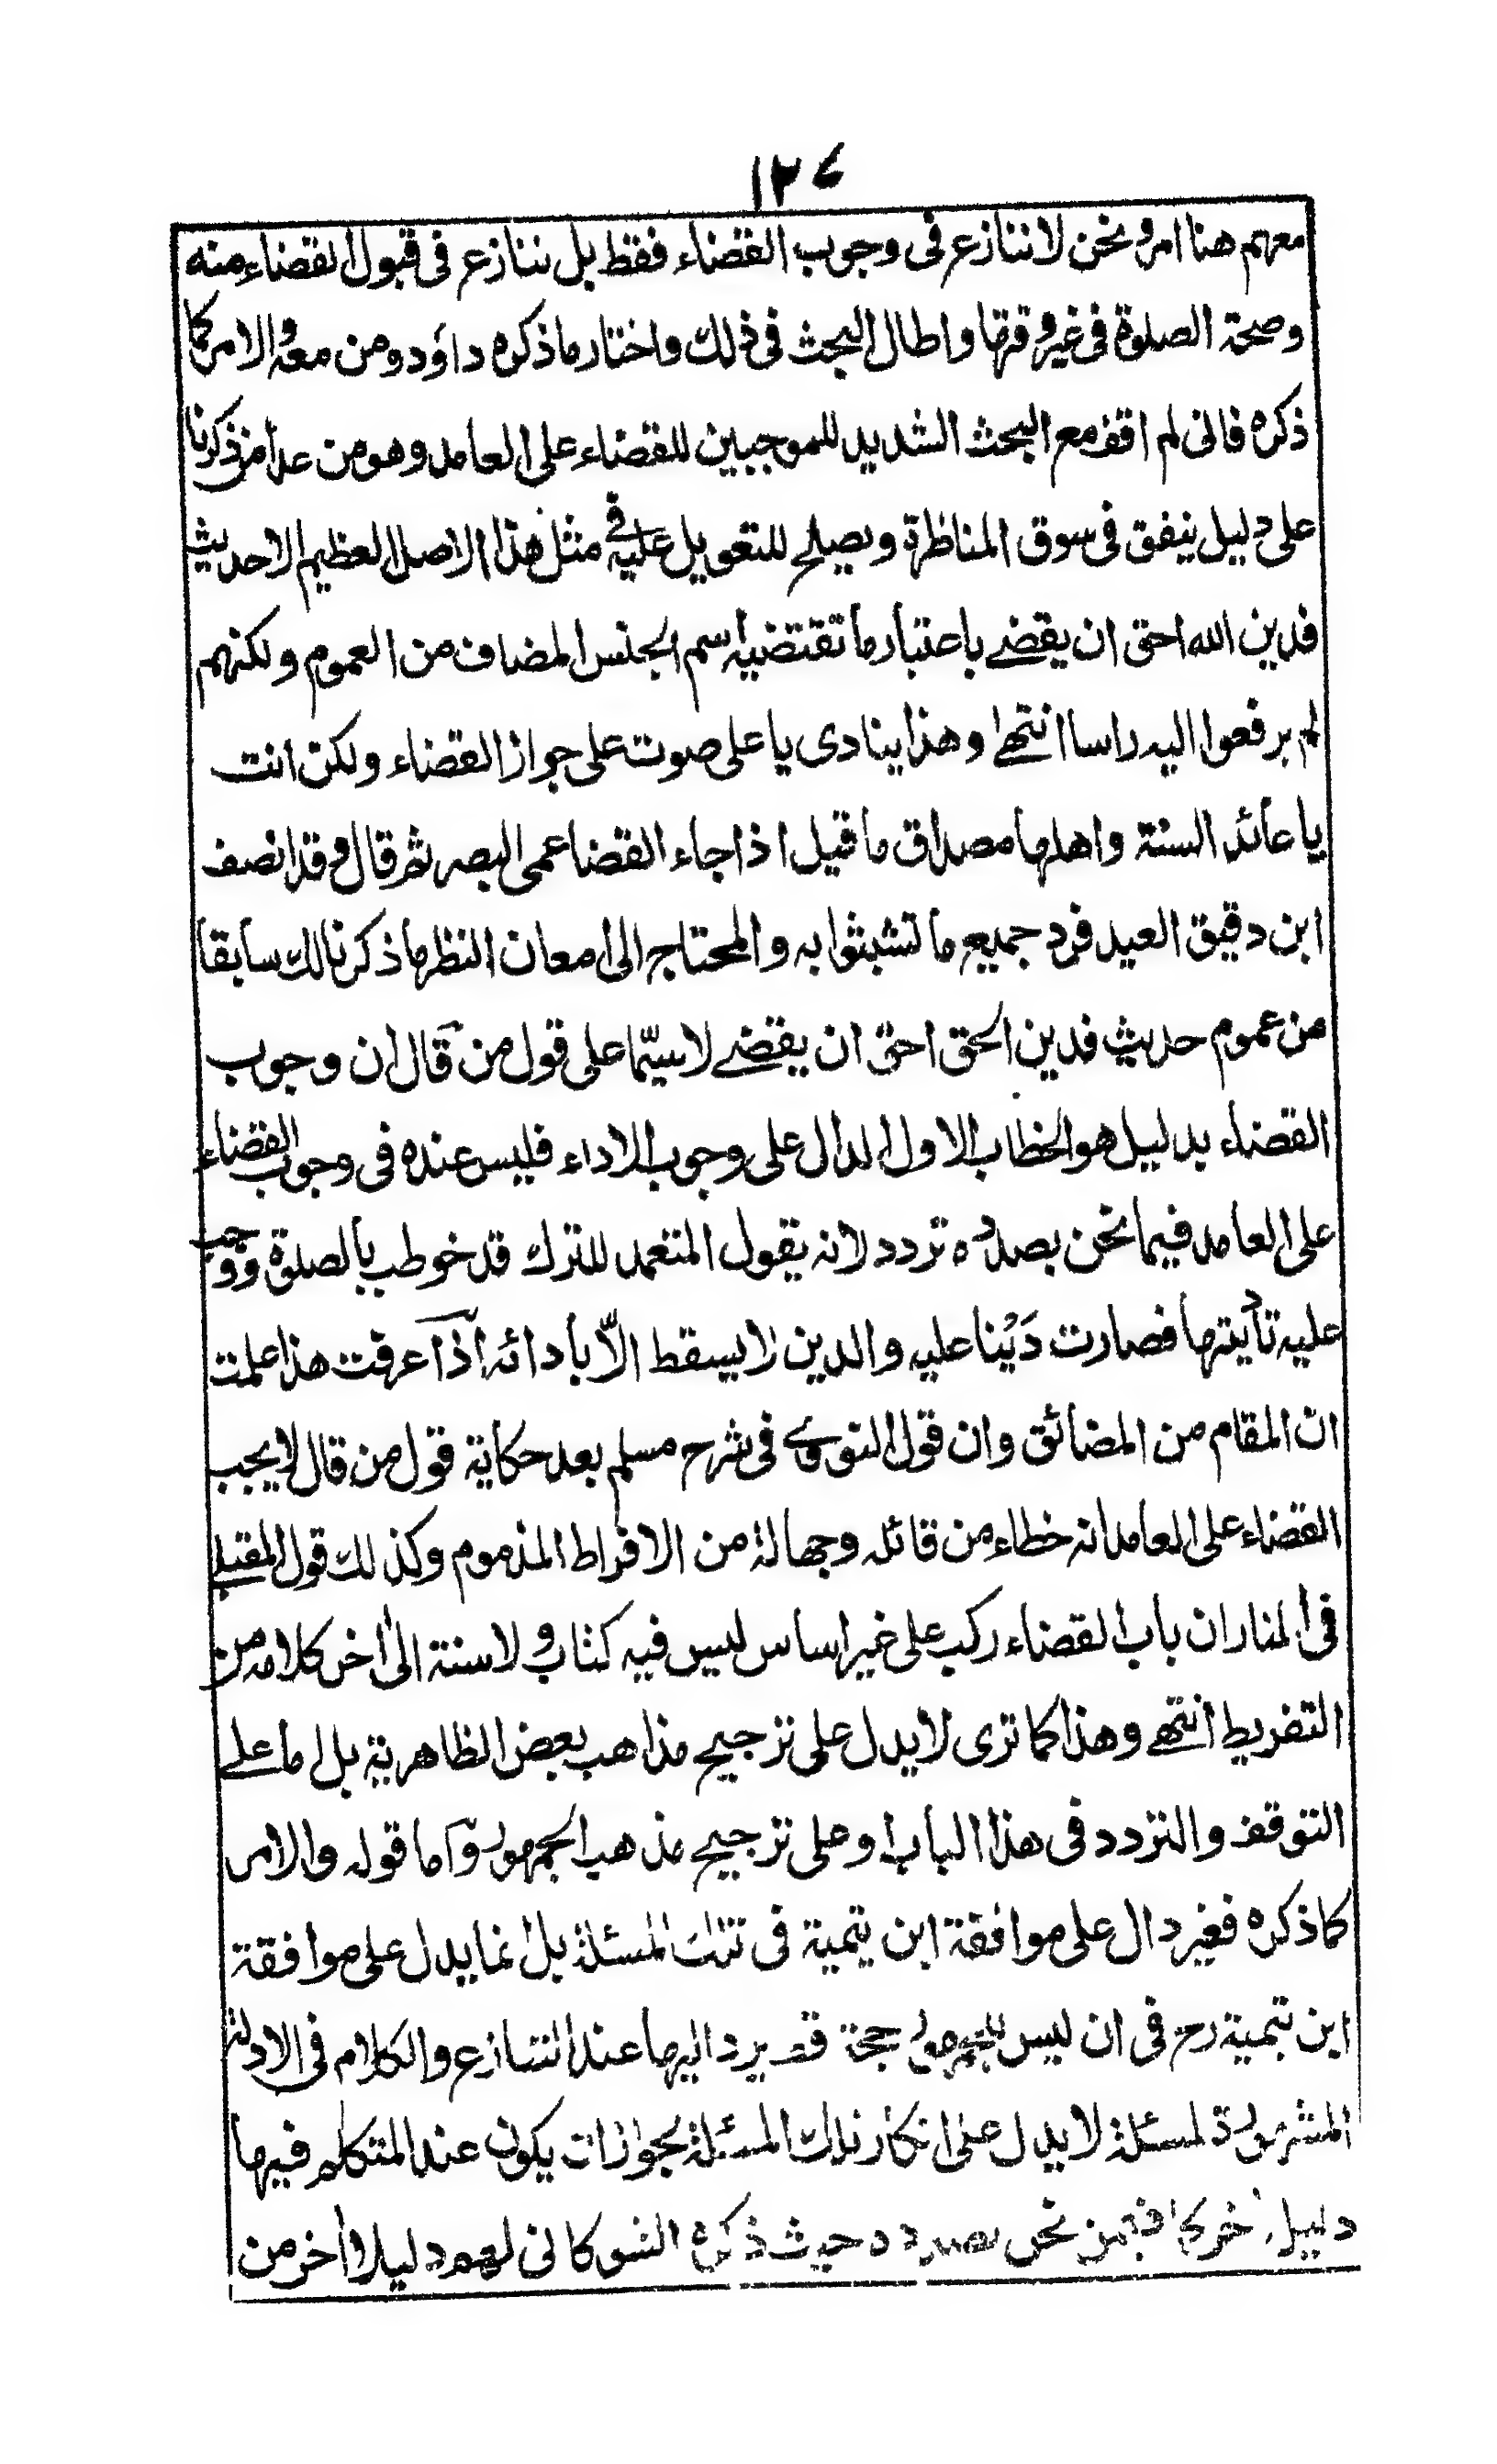 ١٢٧
معهم هنا امر ونحن لا ننازع فى وجوب القضاء فقط بل ننازع فى قبول القضاء منه
وصحة الصلوة فى غير وقتها واطال البحث فى ذلك واختار ما ذكره داؤد ومن معه والامر كما
ذكره فانى لم اقف مع البحث الشديد للموجبين للقضاء على العامد وهو من عدا من ذكرنا
على دليل ينفق فى سوق المناظرة ويصلح للتعويل عليه فى مثل هذا الاصل العظيم الا حديث
فدين الله احق ان يقضے باعتبار ما تقتضيه اسم الجنس المضاف من العموم ولكنهم
لم يرفعوا اليه راسا انتهے وهذا ينادى يا على صوت على جواز القضاء ولكن انت
يا عائد السنة واهلها مصداق ما قيل اذا جاء القضا عمى البصر ثم قال وقد انصف
ابن دقيق العيد فرد جميع ما تشبثوا به والمحتاج الى امعان النظر ما ذكرنا لك سابقا
من عموم حديث فدين الحق احق ان يقضے لا سيّما على قول من قال ان وجوب
القضاء بدليل هو الخطاب الاول الدال على وجوب الاداء فليس عنده فى وجوب القضاء
على العامد فيما نحن بصدده تردد لانه يقول المتعمد للترك قد خوطب بالصلوة ووجب
عليه تأديتها فصارت دَيْنا عليه والدين لا يسقط الّا بأدائه اذا عرفت هذا علمت
ان المقام من المضائق وان قول النووے فى شرح مسلم بعد حكاية قول من قال لا يجب
القضاء على العامد انه خطاء من قائله وجهالة من الافراط المذموم وكذلك قول المقبلے
فى المنار ان باب القضاء ركب على غير اساس ليس فيه كتاب ولا سنة الى اخر كلامه من
التفريط انتهے وهذا كما ترى لا يدل على ترجيح مذاهب بعض الظاهرية بل اما علے
التوقف والتردد فى هذا الباب او على ترجيح مذهب الجمهور واما قوله والامر
كما ذكره فغير دال على موافقة ابن تيمية فى تلك المسئلة بل انما يدل على موافقة
ابن تيمية رح فى ان ليس للجمهور حجة قد يرد اليها عند التنازع والكلام فى الادلة
المشهورة لمسئلة لا يدل على انكار تلك المسئلة بجواز ان يكون عند المتكلم فيها
دليل اخر كما فيمن نحن بصدده حيث ذكر الشوكانى لهم دليلا اخر من